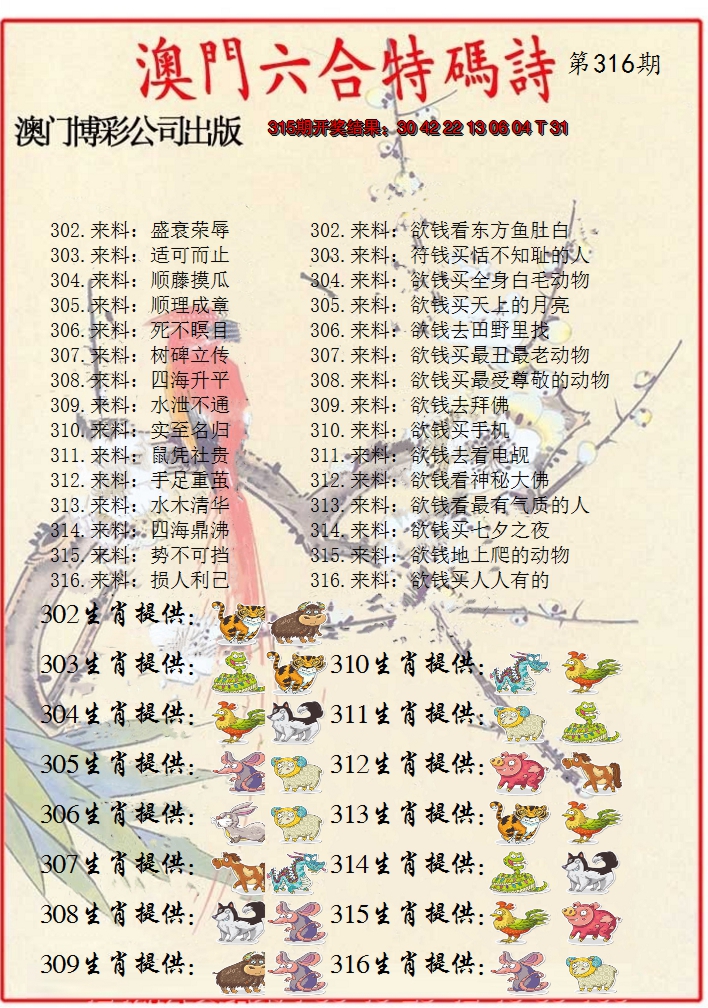 澳門六合特碼詩 第316期
澳门博彩公司出版 315期开奖结果：30 42 22 13 06 04 T 31
302.来料：盛衰荣辱 302.来料：欲钱看东方鱼肚白
303.来料：适可而止 303.来料：符钱买恬不知耻的人
304.来料：顺藤摸瓜 304.来料：欲钱买全身白毛动物
305.来料：顺理成章 305.来料：欲钱买天上的月亮
306.来料：死不瞑目 306.来料：欲钱去田野里找
307.来料：树碑立传 307.来料：欲钱买最丑最老动物
308.来料：四海升平 308.来料：欲钱买最受尊敬的动物
309.来料：水泄不通 309.来料：欲钱去拜佛
310.来料：实至名归 310.来料：欲钱买手机
311.来料：鼠凭社贵 311.来料：欲钱去看电觇
312.来料：手足重茧 312.来料：欲钱看神秘大佛
313.来料：水木清华 313.来料：欲钱看最有气质的人
314.来料：四海鼎沸 314.来料：欲钱买七夕之夜
315.来料：势不可挡 315.来料：欲钱地上爬的动物
316.来料：损人利己 316.来料：欲钱买人人有的
302生肖提供：
303生肖提供： 310生肖提供：
304生肖提供： 311生肖提供：
305生肖提供： 312生肖提供：
306生肖提供： 313生肖提供：
307生肖提供： 314生肖提供：
308生肖提供： 315生肖提供：
309生肖提供： 316生肖提供：